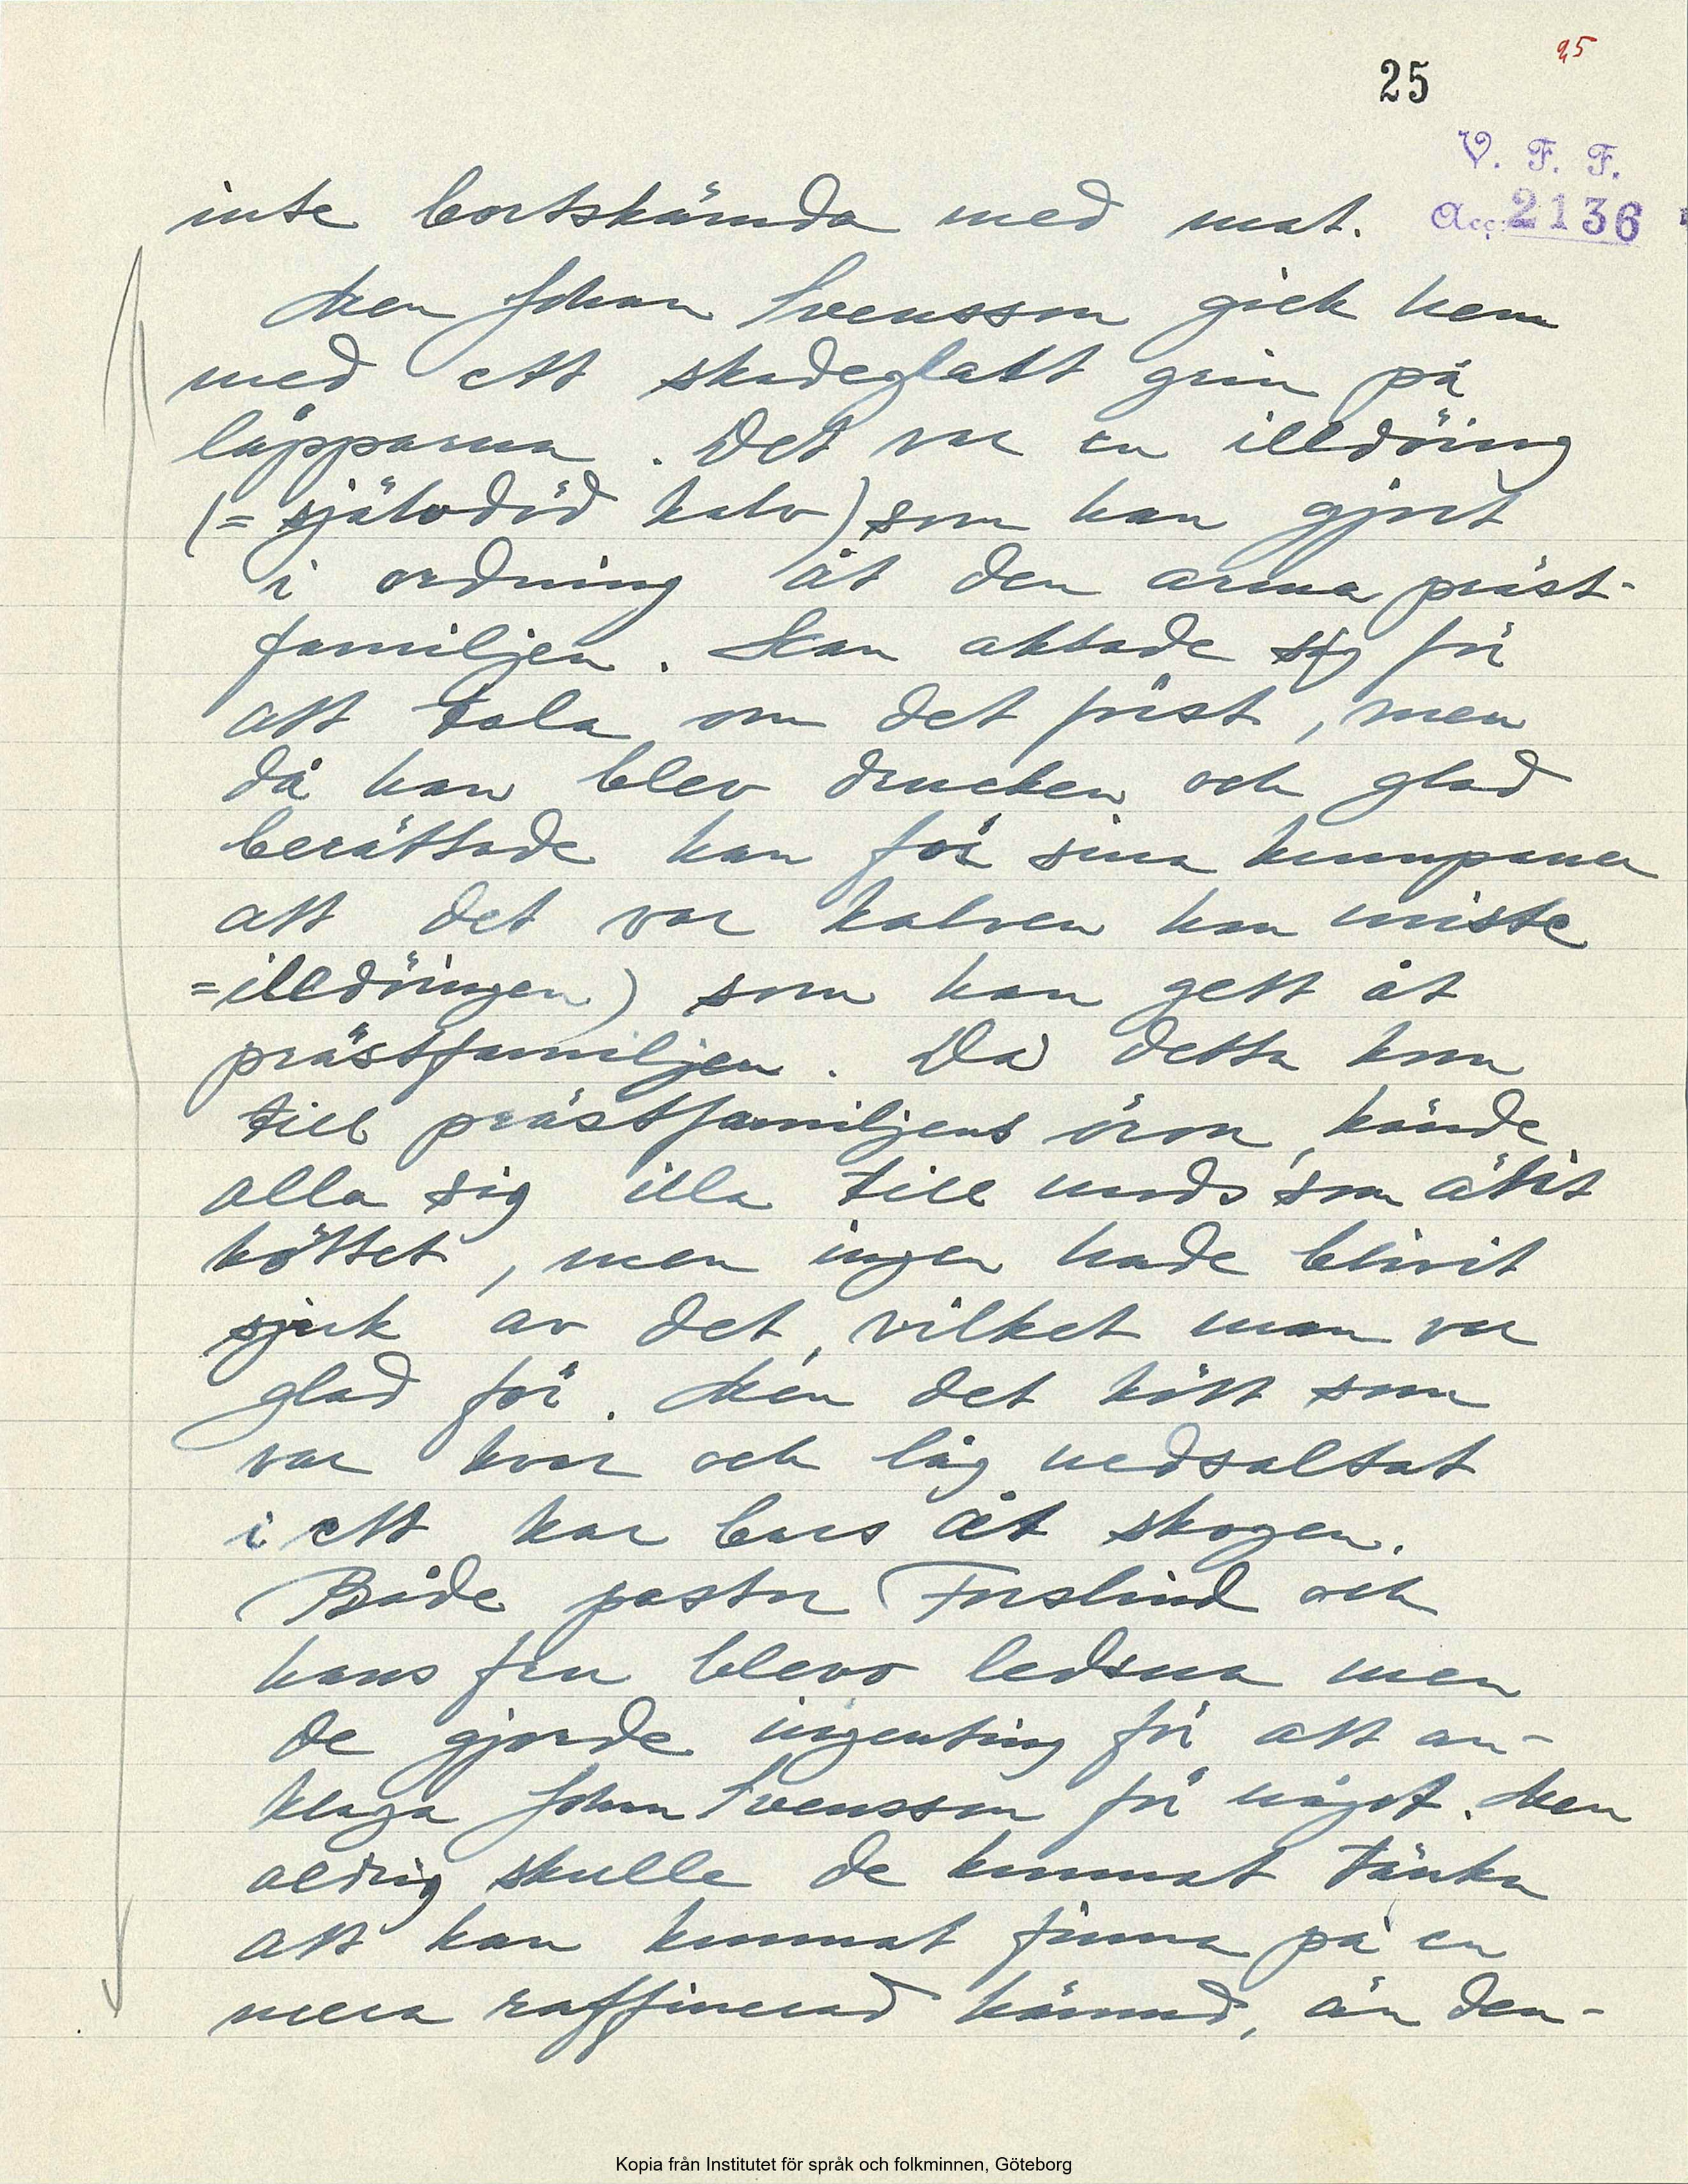 25
25
V. F. F.
Acc. 2136
inte bortskämda med mat.
Men Johan Svensson gick hem
med ett skadeglatt grin på
läpparna. Det var en illdöing
(= självdöd kalv) som han gjort
i ordning åt den arma präst-
familjen. Han aktade sig för
att tala om det först, men
då han blev drucken och glad
berättade han för sina kumpaner
att det var kalven han miste
=illdöingen) som han gett åt
prästfamiljen. Då detta kom
till prästfamiljens öron, kände
alla sig illa till mods som ätit
köttet, men ingen hade blivit
sjuk av det, vilket man var
glad för. Men det kött som
var kvar och låg nedsaltat
i ett kar bars åt skogen.
Både pastor Forslind och
hans fru blevo ledsna men
de gjorde ingenting för att an-
klaga Johan Svensson för något. Men
aldrig skulle de kunnat tänka
att han kunnat finna på en
mera raffinerad hämnd, än den-
Kopia från Institutet för språk och folkminnen, Göteborg